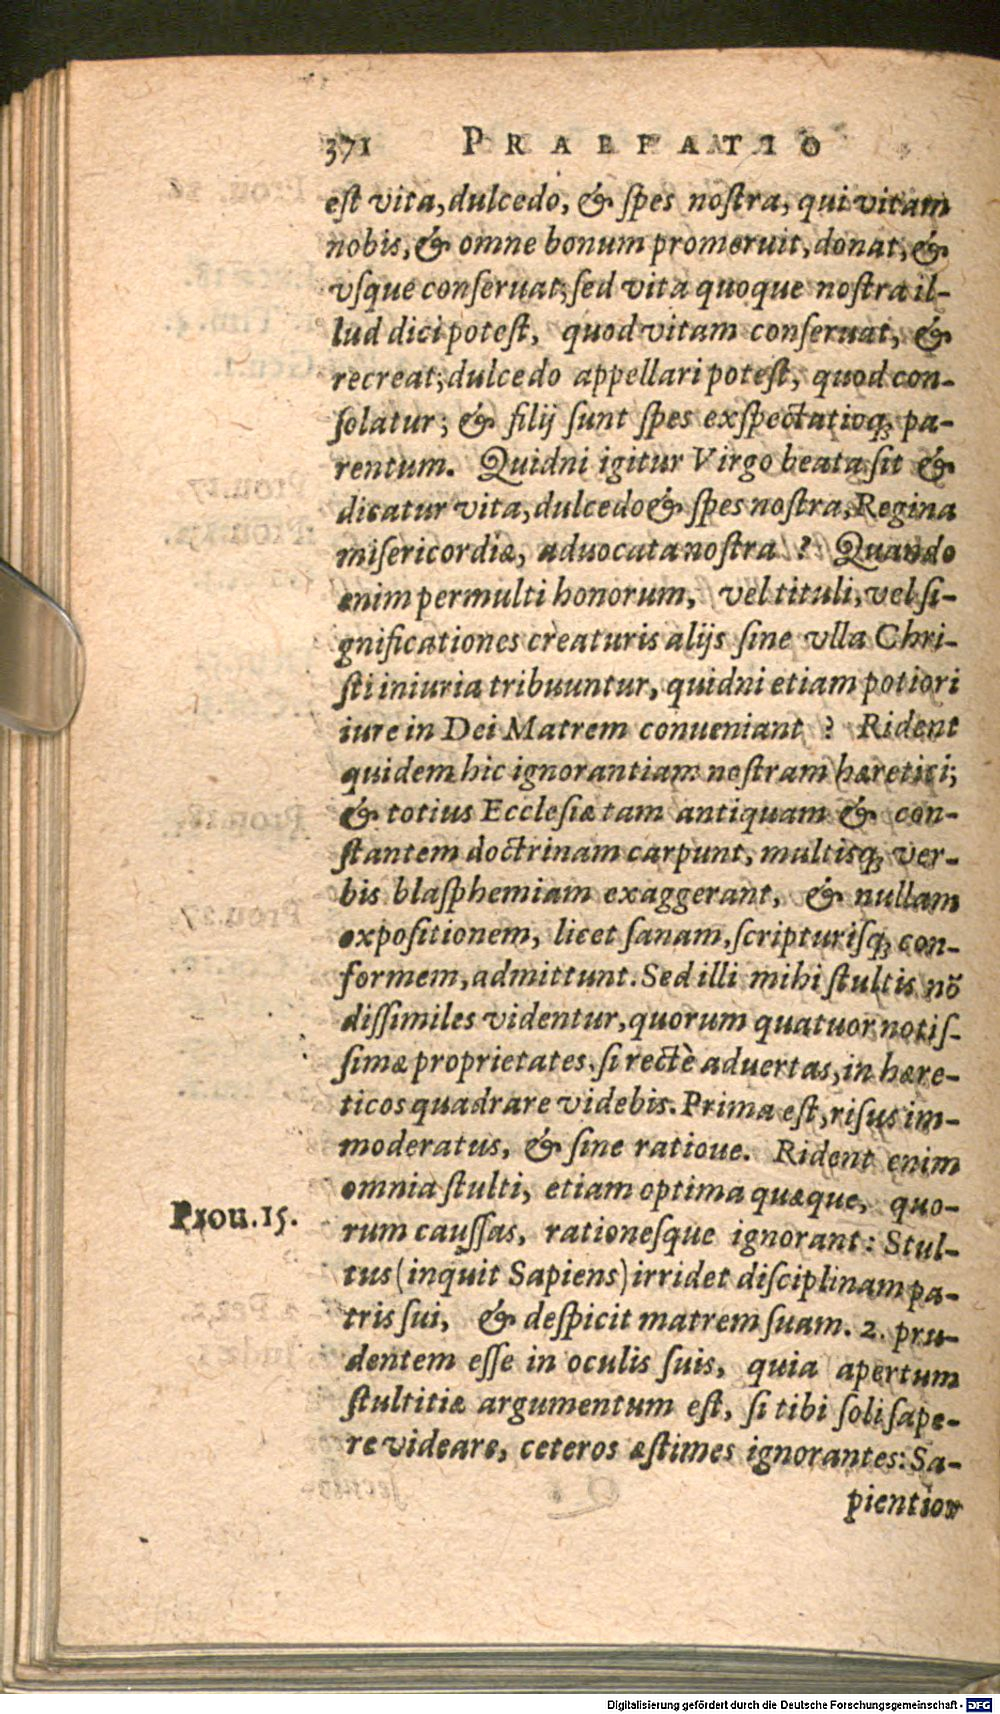 371 PRAEFATIO
eſt vita, dulcedo, & ſpes noſtra, qui vitam
nobis, & omne bonum promeruit, donat, &
vſque conſeruat; ſed vita quoque noſtra il-
lud dici poteſt, quod vitam conſeruat, &
recreat; dulcedo appellari poteſt, quod con-
ſolatur; & filij ſunt ſpes exſpectatioq; pa-
rentum. Quidni igitur Virgo beata ſit &
dicatur vita, dulcedo & ſpes noſtra, Regina
miſericordiæ, aduocata noſtra ? Quando
enim permulti honorum, vel tituli, vel ſi-
gnificationes creaturis alijs ſine vlla Chri-
ſti iniuria tribuuntur, quidni etiam potiori
iure in Dei Matrem conueniant ? Rident
quidem hic ignorantiam noſtram hæretici;
& totius Eccleſiæ tam antiquam & con-
ſtantem doctrinam carpunt, multisq; ver-
bis blaſphemiam exaggerant, & nullam
expoſitionem, licet ſanam, ſcripturiſq; con-
formem, admittunt. Sed illi mihi ſtultis nõ
diſſimiles videntur, quorum quatuor notiſ-
ſimæ proprietates, ſi rectè aduertas, in hære-
ticos quadrare videbis. Prima eſt, riſus im-
moderatus, & ſine ratioue. Rident enim
omnia ſtulti, etiam optima quæque, quo-
rum cauſſas, rationeſque ignorant: Stul-
Prou.15.
tus (inquit Sapiens) irridet diſciplinam pa-
tris ſui, & deſpicit matrem ſuam. 2. pru-
dentem eſſe in oculis ſuis, quia apertum
ſtultitiæ argumentum eſt, ſi tibi ſoli ſape-
re videare, ceteros æſtimes ignorantes: Sa-
pientior
Digitalisierung gefördert durch die Deutsche Forschungsgemeinschaft - DFG